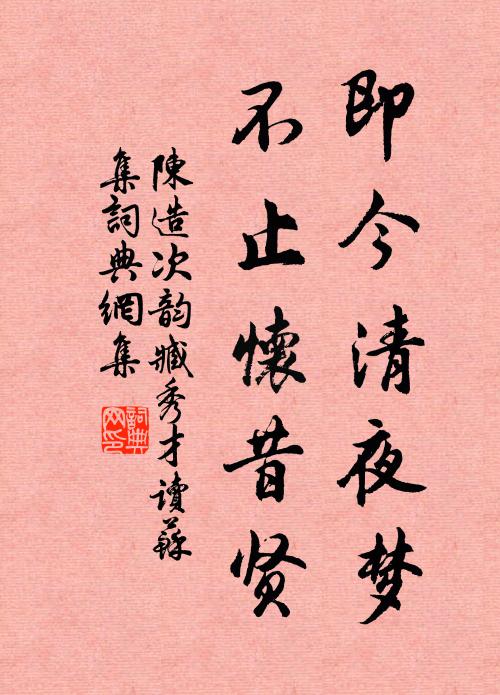 即今清夜梦
不止懷昔贤
陳造次韵臧秀才讀蘇
集詞典網集
詞典
网印